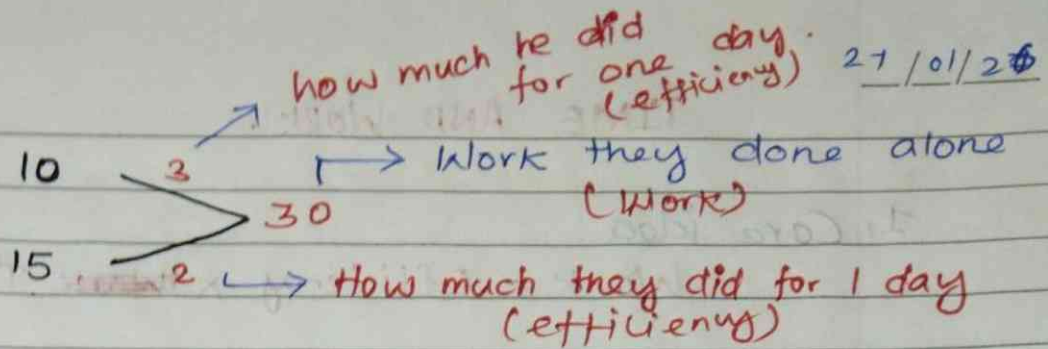 how much he did
for one day.
(efficieny)
27/01/26
10 3 Work they done alone
30 (Work)
15 2 How much they did for 1 day
(efficieny)